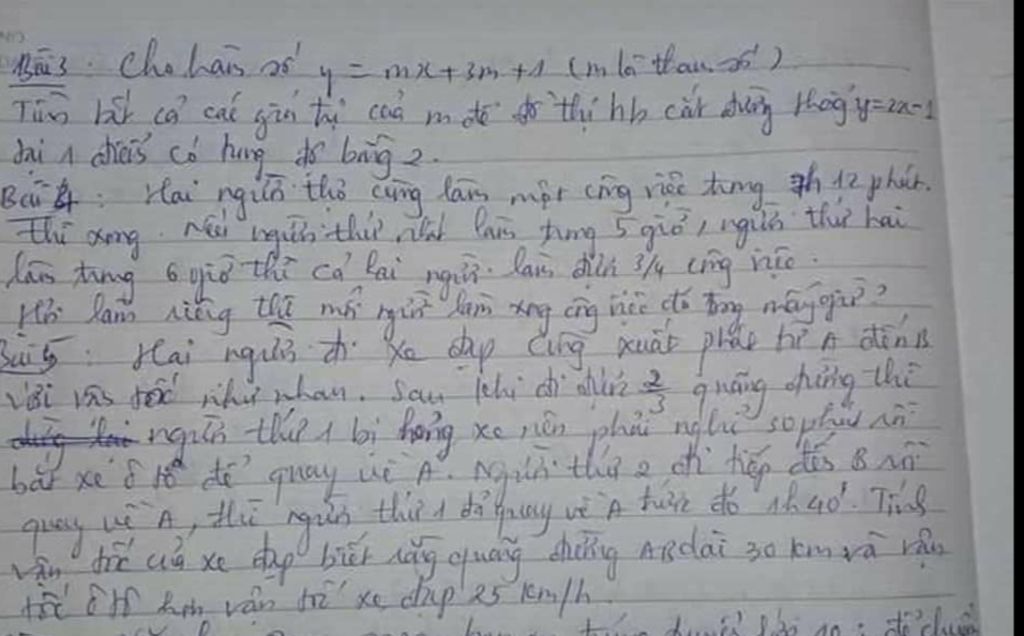 Bài 3: Cho hàm số y = mx + 3m + 1 (m là tham số)
Tìm tất cả các giá trị của m để đồ thị hs cắt đường thẳng y = 2x - 1
tại 1 điểm có tung độ bằng 2.
Bài 4: Hai người thợ cùng làm một công việc trong 7h 12 phút.
Thì xong. Nếu người thứ nhất làm trong 5 giờ, người thứ hai
làm trong 6 giờ thì cả hai người làm được 3/4 công việc.
Hỏi làm riêng thì mỗi người làm xong công việc đó trong mấy giờ?
Bài 5: Hai người đi xe đạp cùng xuất phát từ A đến B
với vận tốc như nhau. Sau khi đi được 2/3 quãng đường thì
người thứ 1 bị hỏng xe nên phải nghỉ 30 phút rồi
bắt xe ô tô để quay về A. Người thứ 2 đi tiếp đến B rồi
quay về A, thì người thứ 1 đã quay về A trước đó 1h40'. Tính
vận tốc của xe đạp biết rằng quãng đường AB dài 30 km và vận
tốc ô tô hơn vận tốc xe đạp 25 km/h.